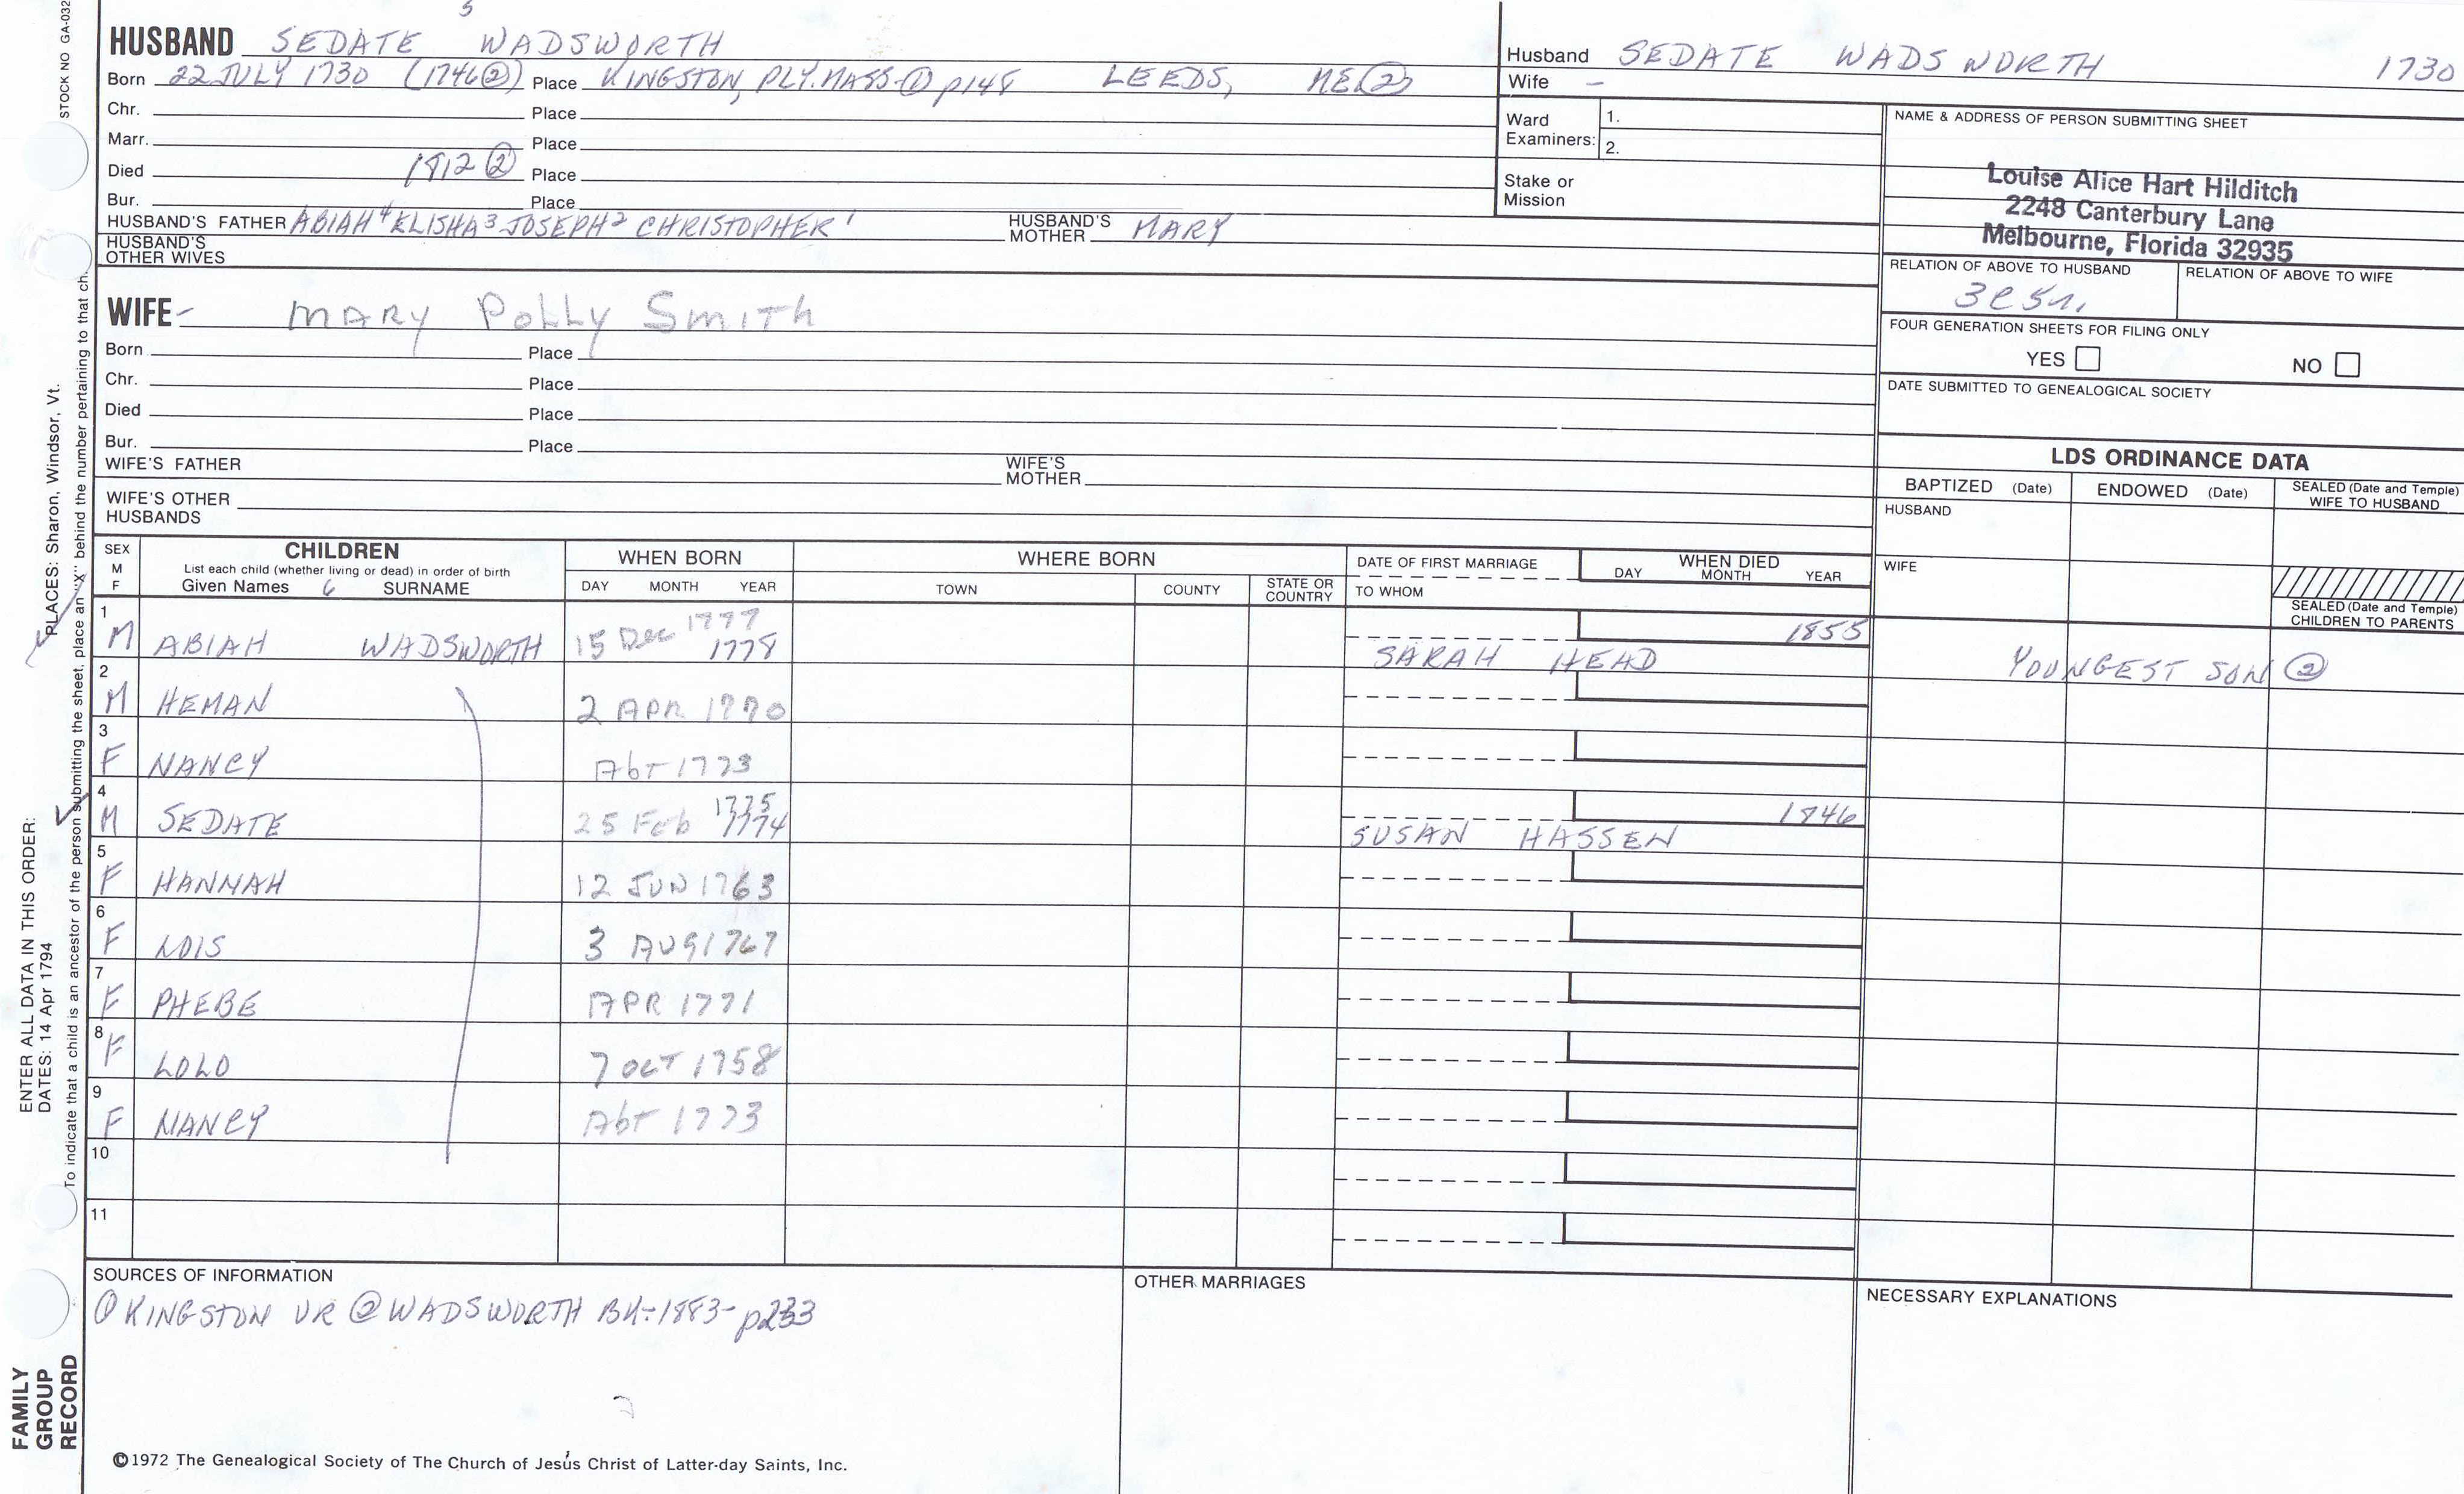 5
HUSBAND SEDATE WADSWORTH
Born 22 JULY 1730 (1746②) Place KINGSTON, PLY. MASS-① p148 LEEDS, ME②
Chr. Place
Marr. Place
Died 1812② Place
Bur. Place
HUSBAND'S FATHER ABIAH⁴ ELISHA³ JOSEPH² CHRISTOPHER¹ HUSBAND'S MOTHER MARY
HUSBAND'S OTHER WIVES
WIFE- MARY POLLY SMITH
Born Place
Chr. Place
Died Place
Bur. Place
WIFE'S FATHER WIFE'S MOTHER
WIFE'S OTHER HUSBANDS
Husband SEDATE WADSWORTH 1730
Wife -
Ward Examiners: 1.
2.
Stake or Mission
NAME & ADDRESS OF PERSON SUBMITTING SHEET
Louise Alice Hart Hilditch
2248 Canterbury Lane
Melbourne, Florida 32935
RELATION OF ABOVE TO HUSBAND RELATION OF ABOVE TO WIFE
FOUR GENERATION SHEETS FOR FILING ONLY
YES NO
DATE SUBMITTED TO GENEALOGICAL SOCIETY
LDS ORDINANCE DATA
BAPTIZED (Date) ENDOWED (Date) SEALED (Date and Temple) WIFE TO HUSBAND
HUSBAND
WIFE
SEALED (Date and Temple) CHILDREN TO PARENTS
SEX M F CHILDREN WHEN BORN WHERE BORN DATE OF FIRST MARRIAGE WHEN DIED
List each child (whether living or dead) in order of birth
Given Names 6 SURNAME DAY MONTH YEAR TOWN COUNTY STATE OR COUNTRY TO WHOM DAY MONTH YEAR
1 M ABIAH WADSWORTH 15 Dec 1777 1778 SARAH HEAD 1855 YOUNGEST SON ②
2 M HEMAN 2 APR 1770
3 F NANCY Abt 1773
4 M SEDATE 25 Feb 1775 1774 SUSAN HASSEN 1846
5 F HANNAH 12 JUN 1763
6 F LOIS 3 AUG 1767
7 F PHEBE APR 1771
8 F LOLO 7 OCT 1758
9 F NANCY Abt 1773
10
11
SOURCES OF INFORMATION
① KINGSTON VR ② WADSWORTH BK-1883-p233
OTHER MARRIAGES
NECESSARY EXPLANATIONS
©1972 The Genealogical Society of The Church of Jesus Christ of Latter-day Saints, Inc.
STOCK NO GA-032
PLACES: Sharon, Windsor, Vt.
To indicate that a child is an ancestor of the person submitting the sheet, place an "X" behind the number pertaining to that ch
ENTER ALL DATA IN THIS ORDER:
DATES: 14 Apr 1794
FAMILY
GROUP
RECORD